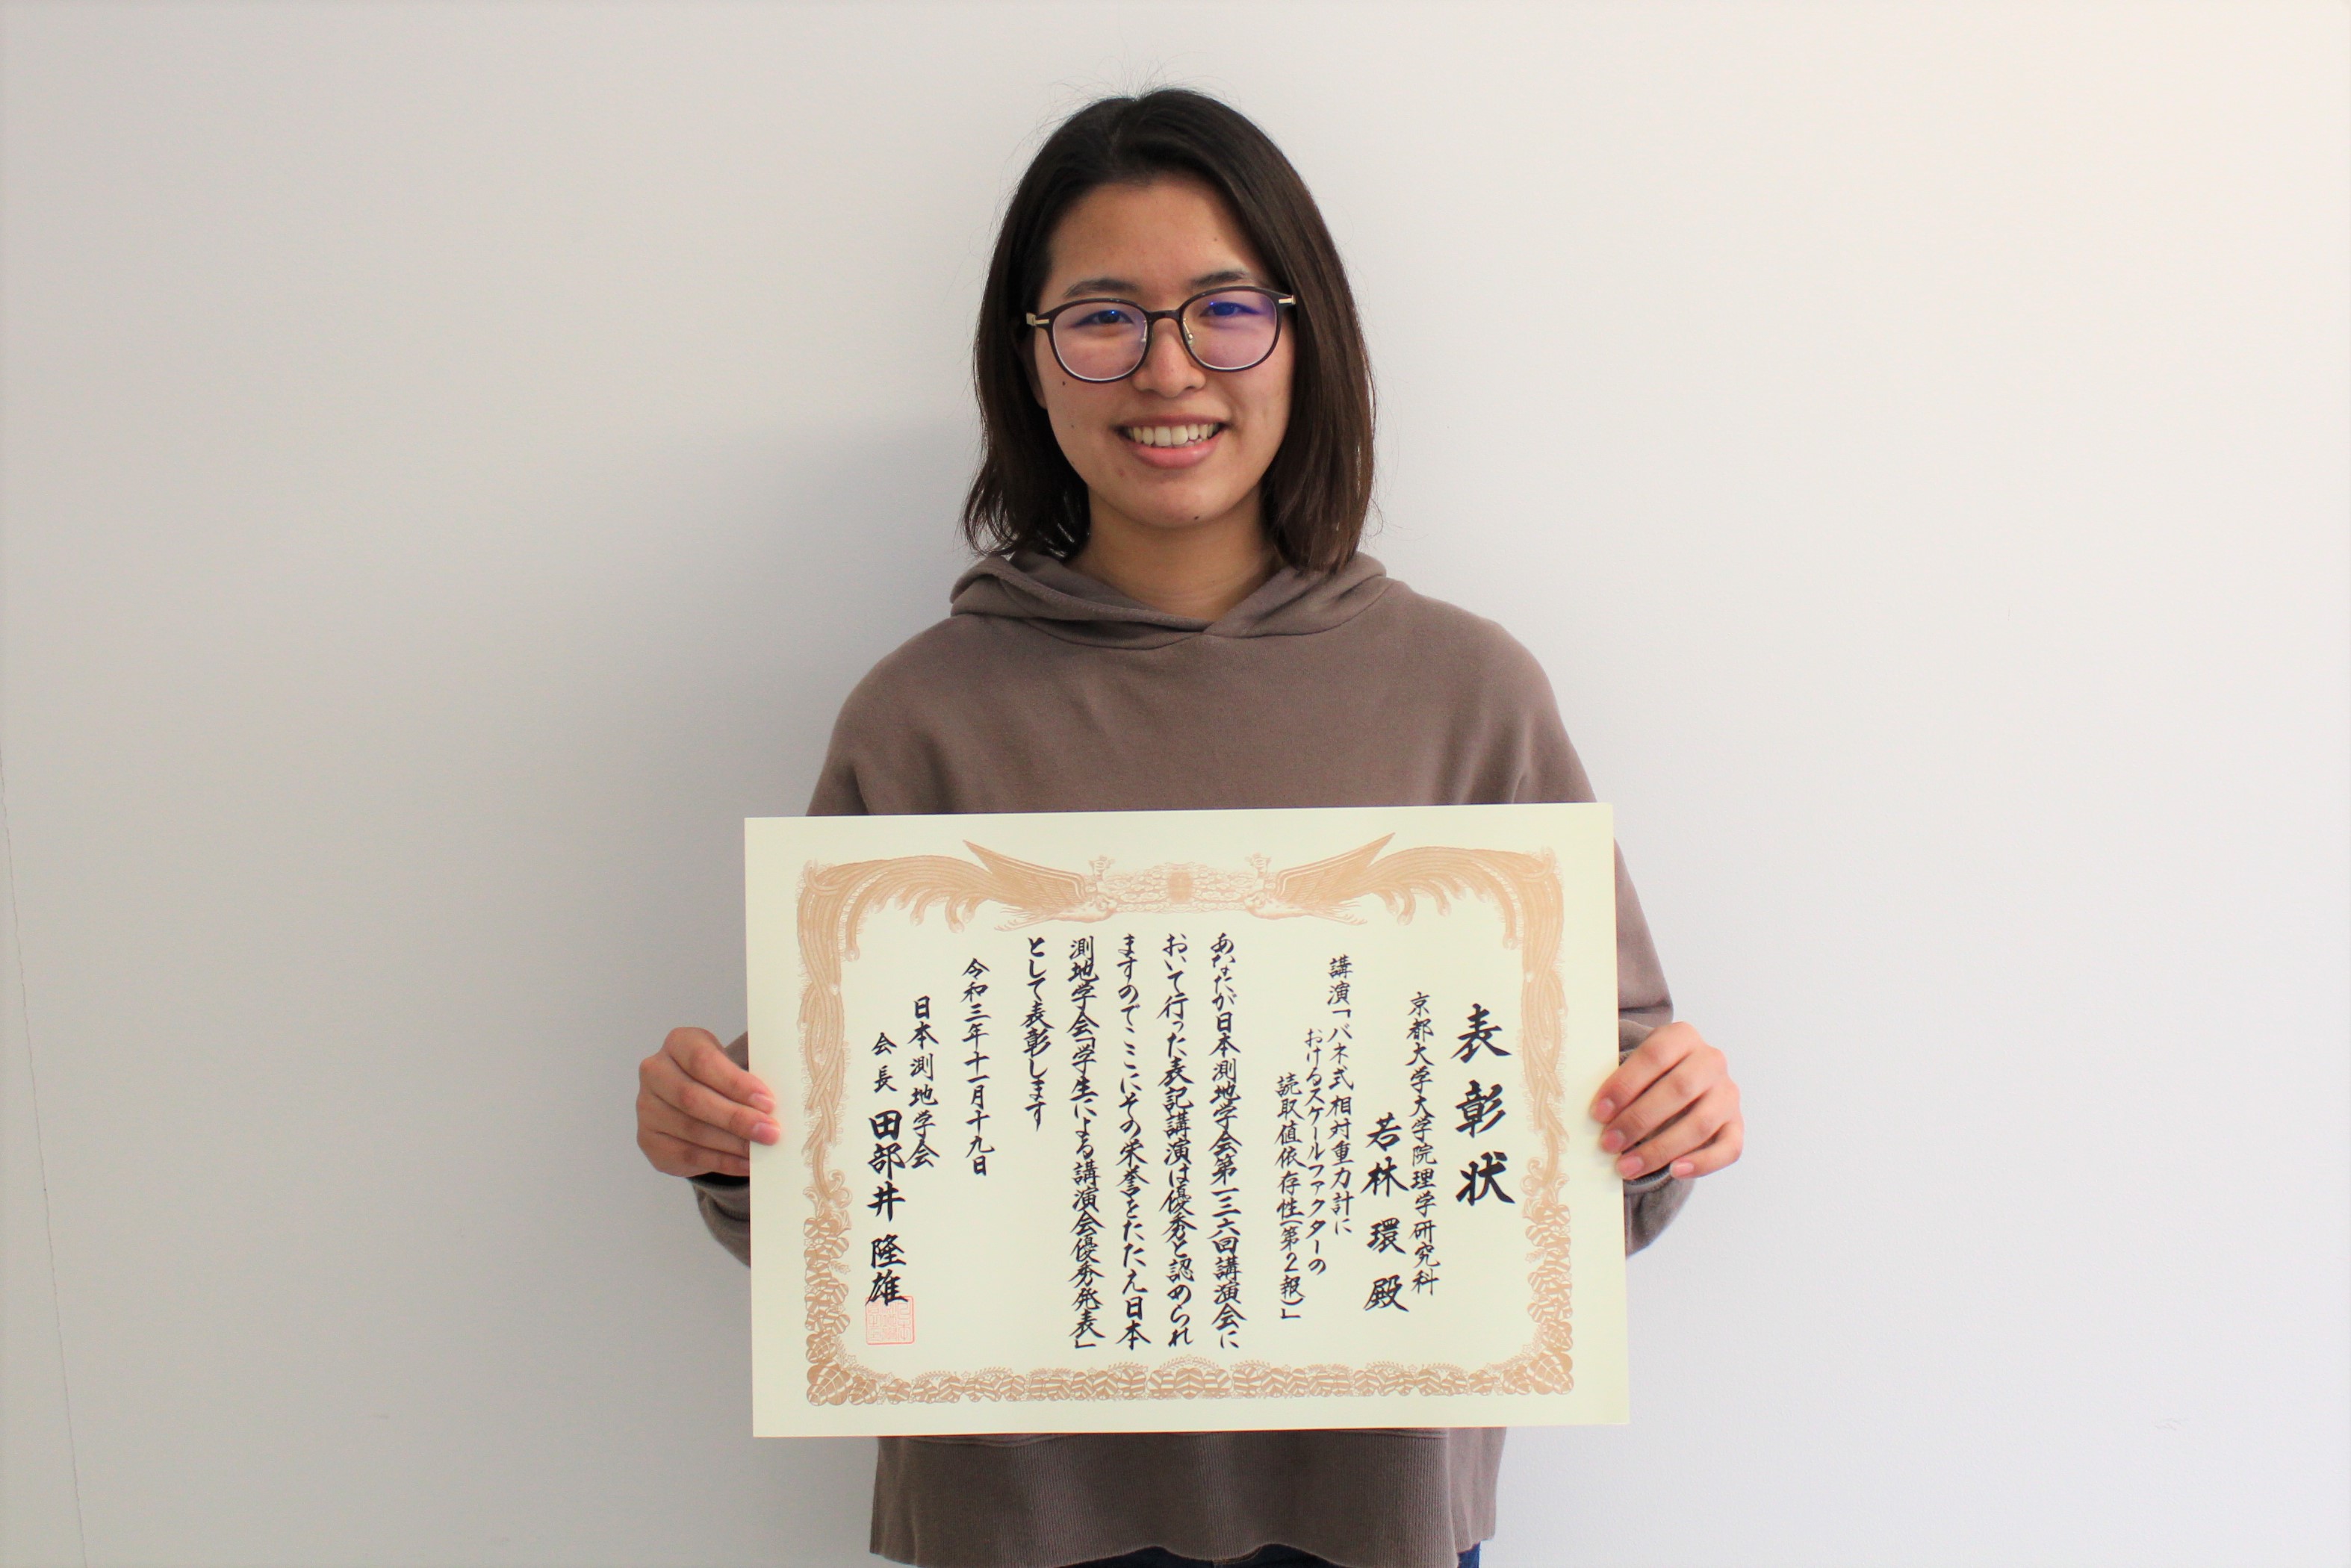 表彰状
京都大学大学院理学研究科
若林 環 殿
講演「バネ式相対重力計に
おけるスケールファクターの
読取値依存性(第2報)」
あなたが日本測地学会第一三六回講演会に
おいて行った表記講演は優秀と認められ
ますのでここにその栄誉をたたえ日本
測地学会「学生による講演会優秀発表」
として表彰します
令和三年十一月十九日
日本測地学会
会長 田部井 隆雄